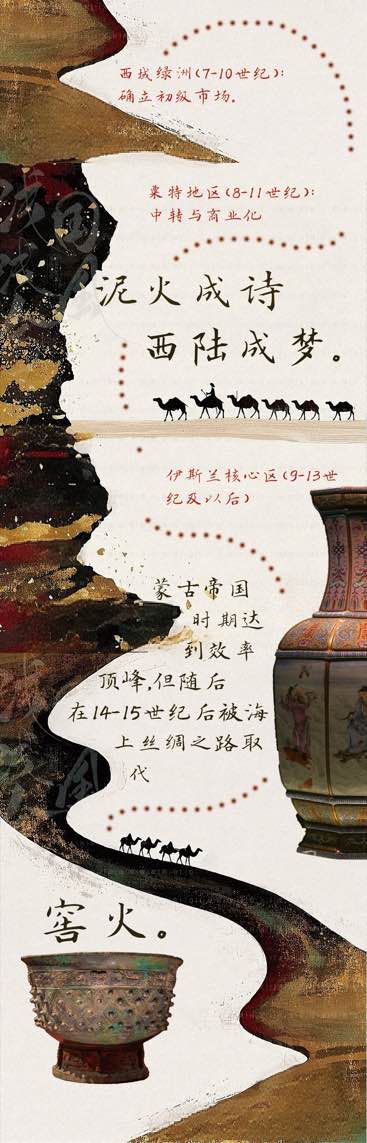 西域绿洲(7-10世纪):
确立初级市场。
粟特地区(8-11世纪):
中转与商业化
泥火成诗
西陆成梦。
伊斯兰核心区(9-13世
纪及以后)
蒙古帝国
时期达
到效率
顶峰,但随后
在14-15世纪后被海
上丝绸之路取
代
窖火。